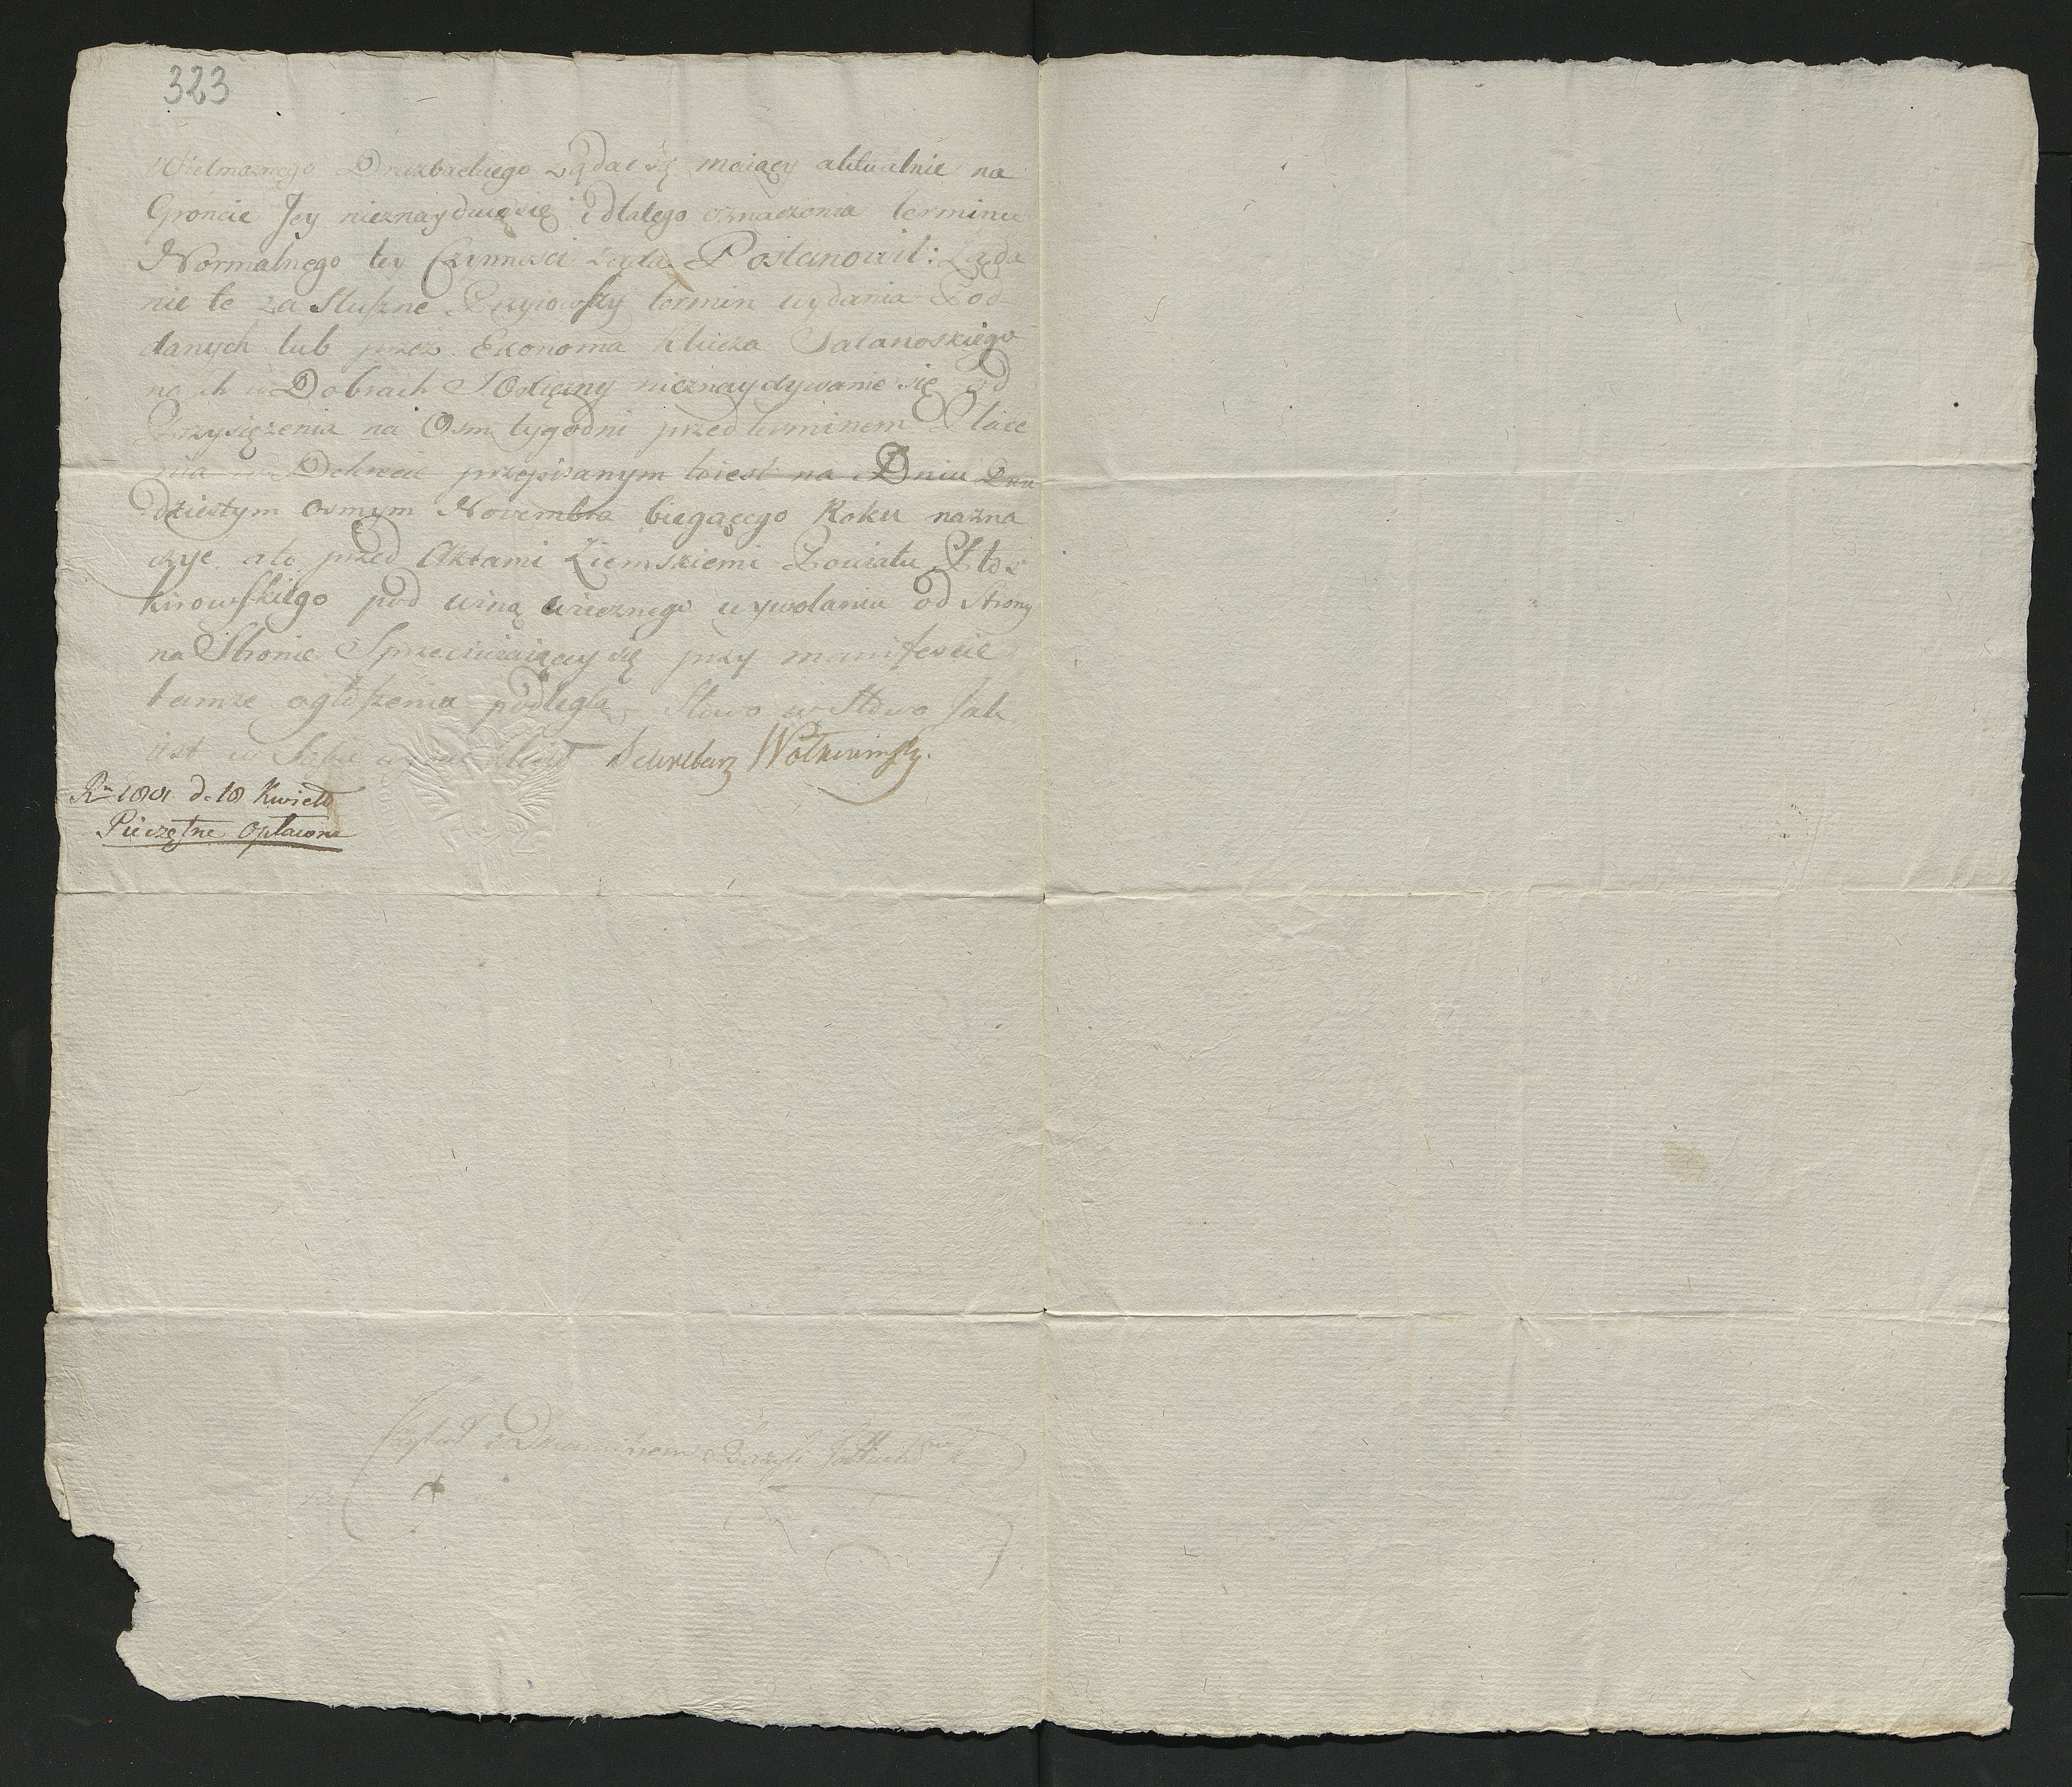 323
Wielmożnego Drazbackiego żądać się maiący aktualnie na
Groncie Jey nieznayduie się i dlatego oznaczenia terminu
Normalnego tey Czynnosci żąda Postanowił: Żąda
nie te za Słuszne Przyiowszy termin wydania Pod
danych lub przez Ekonoma Klucza Satanoskiego
na ich w Dobrach nieznaydywanie się od
Przysiężenia na Osm tygodni przed terminem Płace
nia w Dekrecie przepisanym toiest na Dniu Dwu
dziestym osmym Novembra biegącego Roku nazna
czye ale przed Aktami Ziemskiemi Powiatu Płos
kirowskiego pod winą wiecznego wywołania od Strony
na Stronie Sprzeciwiaiącey się przy manifescie
tamże ogłoszenia podległą Słowo w Słowo Jak
iest w Sądu
Sekretarz
Rku 1801 d. 18 Kwiet
Pieczętne Opłacone
Czytał z